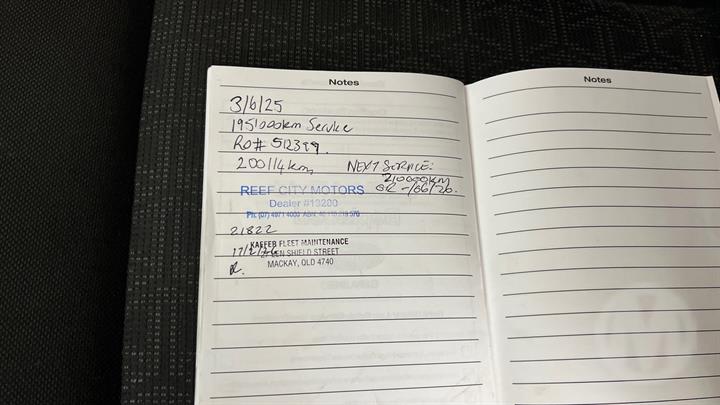 Notes
3/6/25
195,000km Service
Ro# 512399.
200114km,
NEXT SERVICE:
210000km
OR -/06/26.
REEF CITY MOTORS
Dealer #13200
Ph: (07) 4971 4000
21822
17/2/26
KAEFER FLEET MAINTENANCE
SHIELD STREET
MACKAY, QLD 4740
Notes